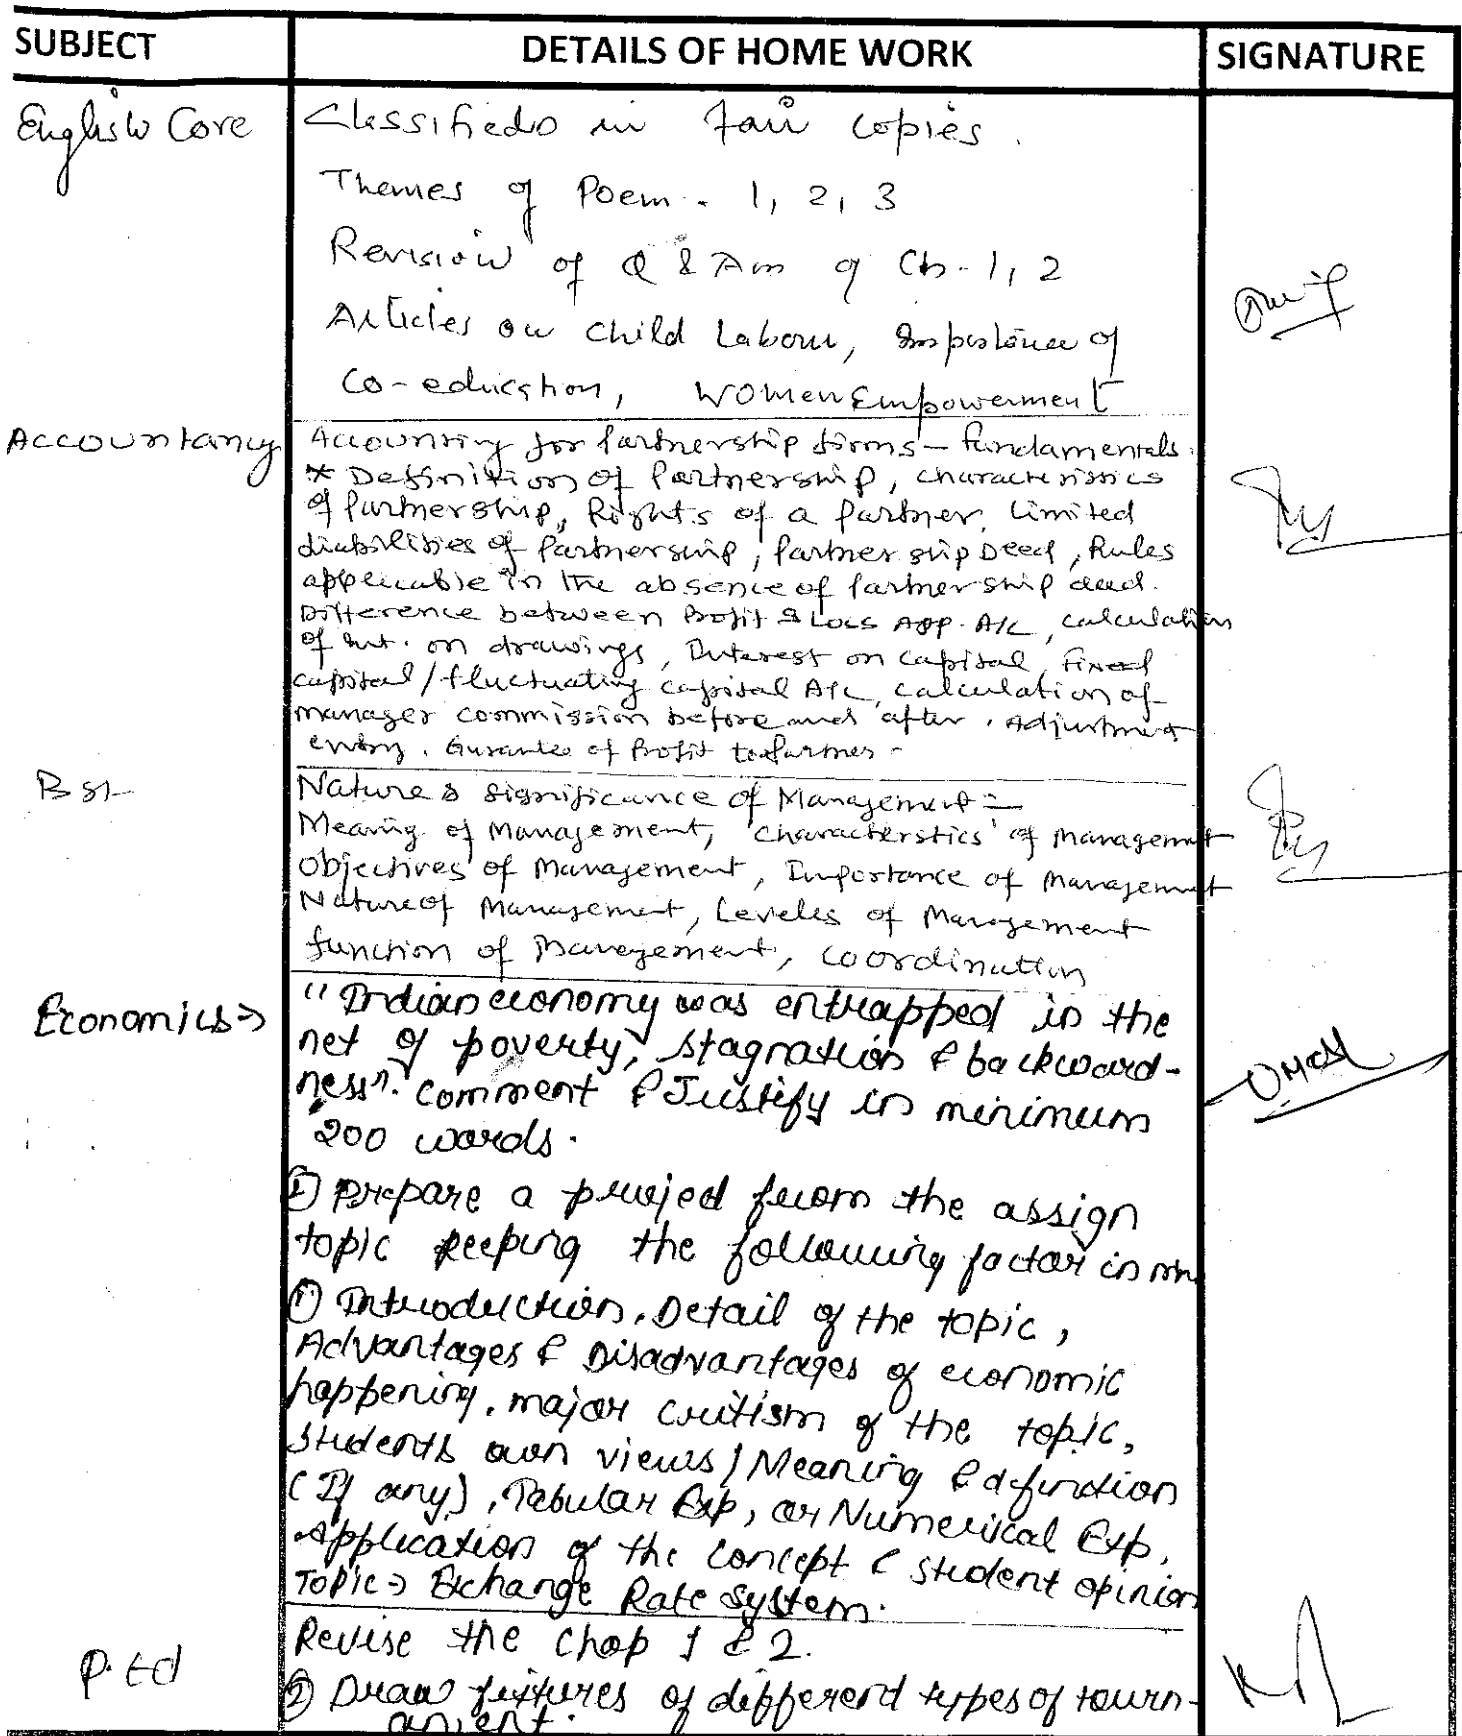 SUBJECT DETAILS OF HOME WORK SIGNATURE
English Core Classifieds in fair copies.
Themes of Poem - 1, 2, 3
Revision of Q & Ans of Ch-1, 2
Articles on Child Labour, Importance of
Co-education, Women Empowerment
Accountancy Accounting for Partnership firms - fundamentals.
* Definition of Partnership, characteristics
of partnership, Rights of a partner, limited
liabilities of partnership, partnership Deed, Rules
applicable in the absence of partnership deed.
Difference between Profit & Loss App. A/c, calculation
of Int. on drawings, Interest on capital, fixed
capital/fluctuating capital A/c, calculation of
manager commission before and after, Adjustment
entry. Gurantee of Profit to partner -
Bst Nature & significance of Management :-
Meaning of Management, characterstics of management
Objectives of Management, Importance of Management
Nature of Management, Leveles of Management
function of Management, coordination
Economics → "Indian economy was entrapped in the
net of poverty, stagnation & backward-
ness". comment & Justify in minimum
200 words.
② Prepare a project from the assign
topic keeping the following factor in
① Introduction, Detail of the topic,
Advantages & Disadvantages of economic
happening, major critism of the topic,
students own views / Meaning & defination
(If any), Tabular Exp, or Numerical Exp,
Application of the concept & student opinion
Topic → Exchange Rate System.
P. Ed Revise the Chap 1 & 2.
② Draw fixtures of different types of tourn-
ament.